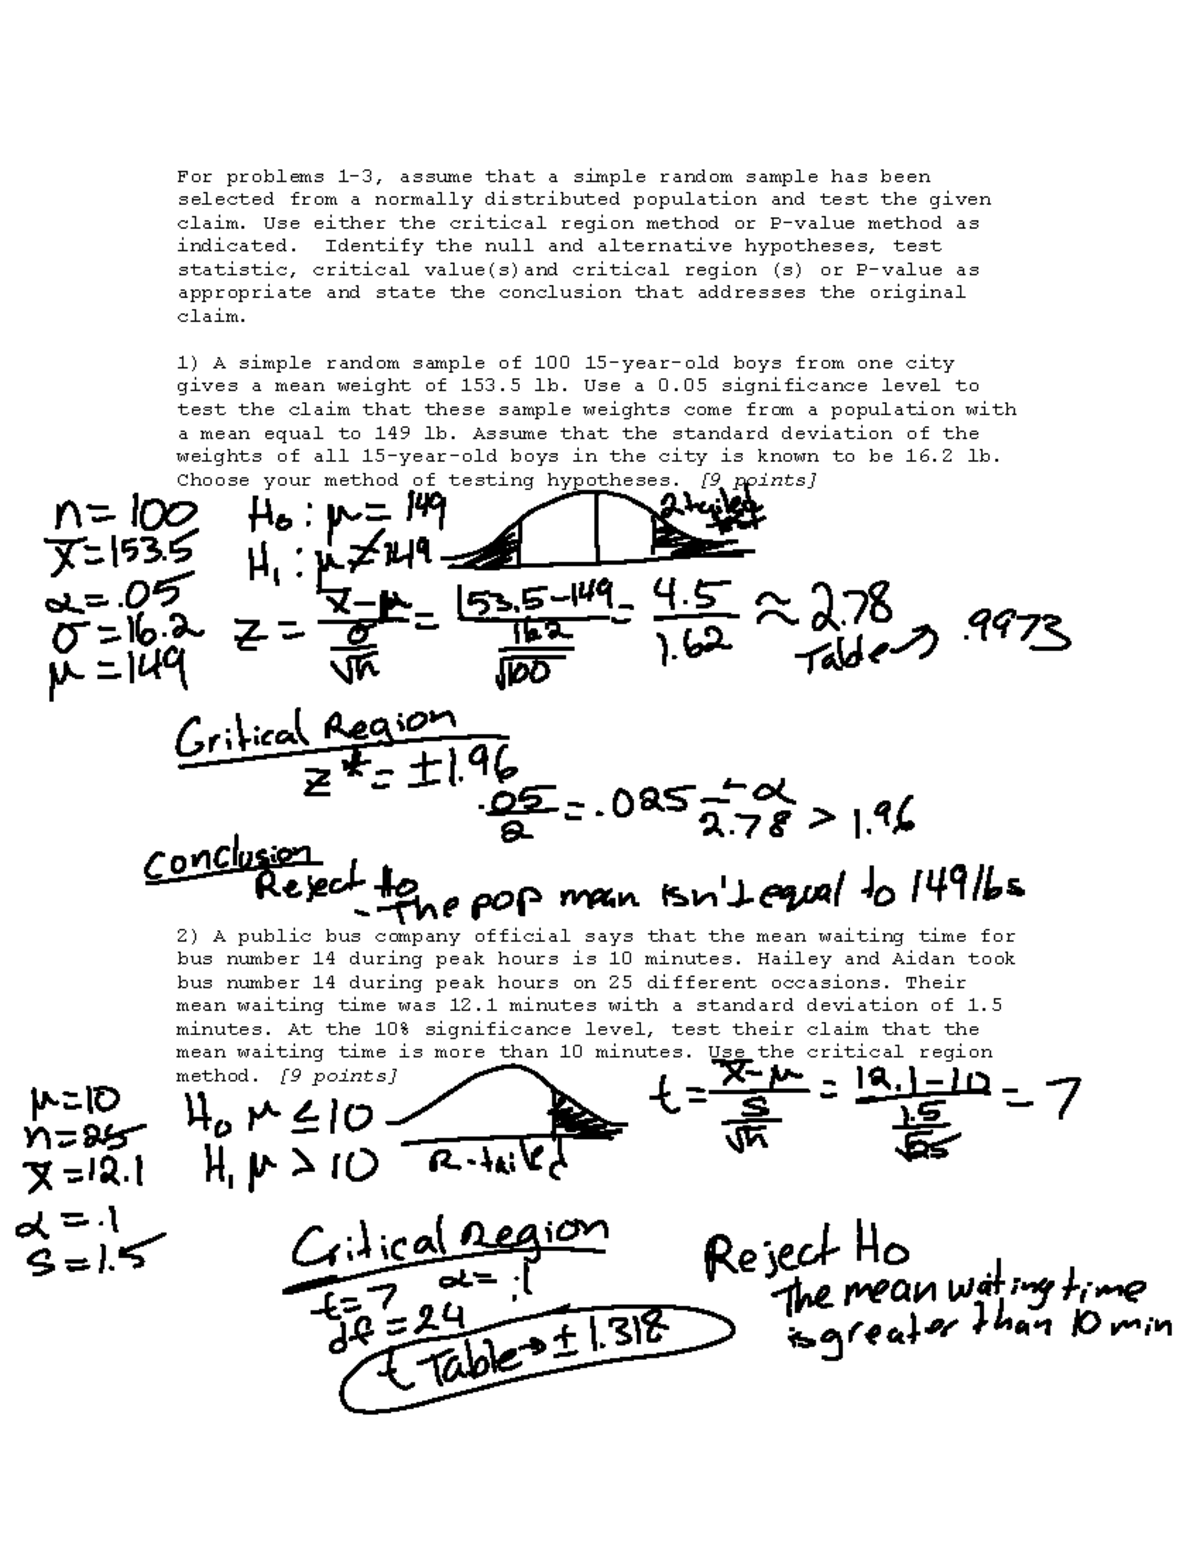 For problems 1-3, assume that a simple random sample has been
selected from a normally distributed population and test the given
claim. Use either the critical region method or P-value method as
indicated.  Identify the null and alternative hypotheses, test
statistic, critical value(s)and critical region (s) or P-value as
appropriate and state the conclusion that addresses the original
claim.
1) A simple random sample of 100 15-year-old boys from one city
gives a mean weight of 153.5 lb. Use a 0.05 significance level to
test the claim that these sample weights come from a population with
a mean equal to 149 lb. Assume that the standard deviation of the
weights of all 15-year-old boys in the city is known to be 16.2 lb.
Choose your method of testing hypotheses. [9 points]
n = 100
x̄ = 153.5
α = .05
σ = 16.2
μ = 149
H₀ : μ = 149
H₁ : μ ≠ 149
2 tailed
test
z = (x̄ - μ)/(σ/√n) = (153.5 - 149)/(16.2/√100) = 4.5/1.62 ≈ 2.78
Table → .9973
Critical Region
z* = ±1.96
.05/2 = .025 ← α
2.78 > 1.96
Conclusion
Reject Ho
- The pop mean isn't equal to 149 lbs
2) A public bus company official says that the mean waiting time for
bus number 14 during peak hours is 10 minutes. Hailey and Aidan took
bus number 14 during peak hours on 25 different occasions. Their
mean waiting time was 12.1 minutes with a standard deviation of 1.5
minutes. At the 10% significance level, test their claim that the
mean waiting time is more than 10 minutes. Use the critical region
method. [9 points]
μ = 10
n = 25
x̄ = 12.1
α = .1
s = 1.5
H₀ μ ≤ 10
H₁ μ > 10
R-tailed
t = (x̄ - μ)/(s/√n) = (12.1 - 10)/(1.5/√25) = 7
Critical Region
t = 7 α = .1
df = 24
t Table → ± 1.318
Reject Ho
The mean wating time
is greater than 10 min